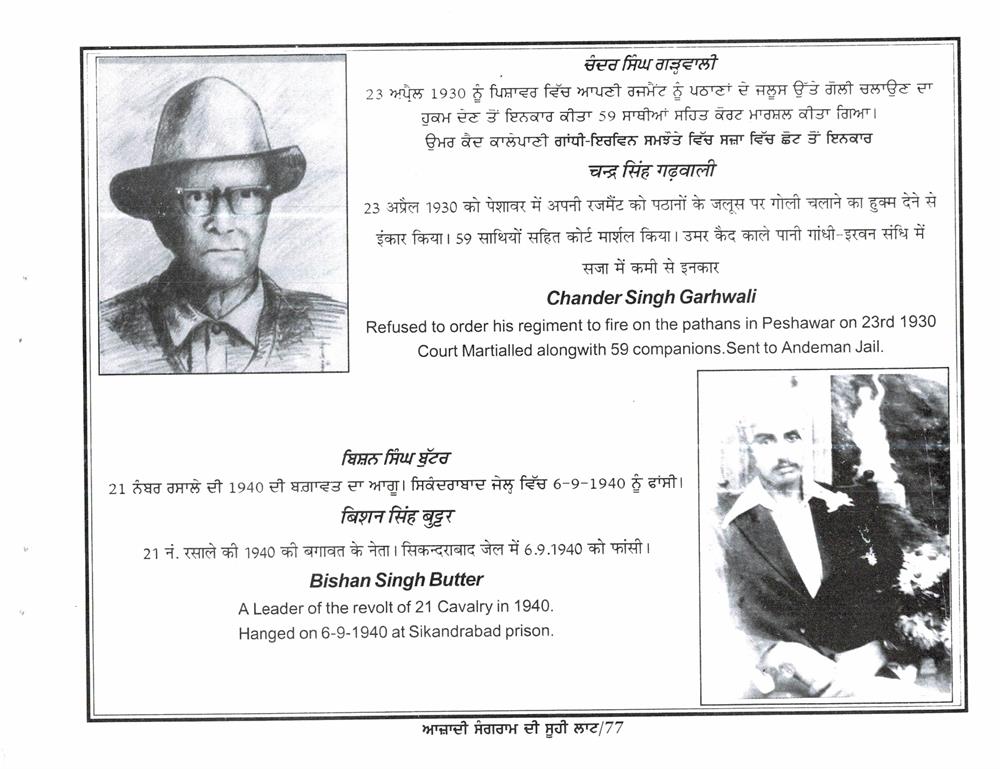 ਚੰਦਰ ਸਿੰਘ ਗੜ੍ਹਵਾਲੀ
23 ਅਪ੍ਰੈਲ 1930 ਨੂੰ ਪਿਸ਼ਾਵਰ ਵਿੱਚ ਆਪਣੀ ਰਜਮੈਂਟ ਨੂੰ ਪਠਾਣਾਂ ਦੇ ਜਲੂਸ ਉੱਤੇ ਗੋਲੀ ਚਲਾਉਣ ਦਾ
ਹੁਕਮ ਦੇਣ ਤੋਂ ਇਨਕਾਰ ਕੀਤਾ 59 ਸਾਥੀਆਂ ਸਹਿਤ ਕੋਰਟ ਮਾਰਸ਼ਲ ਕੀਤਾ ਗਿਆ।
ਉਮਰ ਕੈਦ ਕਾਲੇਪਾਣੀ ਗਾਂਧੀ-ਇਰਵਿਨ ਸਮਝੌਤੇ ਵਿੱਚ ਸਜ਼ਾ ਵਿੱਚ ਛੋਟ ਤੋਂ ਇਨਕਾਰ
चन्द्र सिंह गढ़वाली
23 अप्रैल 1930 को पेशावर में अपनी रजमैंट को पठानों के जलूस पर गोली चलाने का हुक्म देने से
इंकार किया। 59 साथियों सहित कोर्ट मार्शल किया। उमर कैद काले पानी गांधी-इरवन संधि में
सजा में कमी से इनकार
Chander Singh Garhwali
Refused to order his regiment to fire on the pathans in Peshawar on 23rd 1930
Court Martialled alongwith 59 companions.Sent to Andeman Jail.
ਬਿਸ਼ਨ ਸਿੰਘ ਬੁੱਟਰ
21 ਨੰਬਰ ਰਸਾਲੇ ਦੀ 1940 ਦੀ ਬਗ਼ਾਵਤ ਦਾ ਆਗੂ। ਸਿਕੰਦਰਾਬਾਦ ਜੇਲ੍ਹ ਵਿੱਚ 6-9-1940 ਨੂੰ ਫਾਂਸੀ।
बिशन सिंह बुट्टर
21 नं. रसाले की 1940 की बगावत के नेता। सिकन्दराबाद जेल में 6.9.1940 को फांसी।
Bishan Singh Butter
A Leader of the revolt of 21 Cavalry in 1940.
Hanged on 6-9-1940 at Sikandrabad prison.
ਆਜ਼ਾਦੀ ਸੰਗਰਾਮ ਦੀ ਸੂਹੀ ਲਾਟ/77